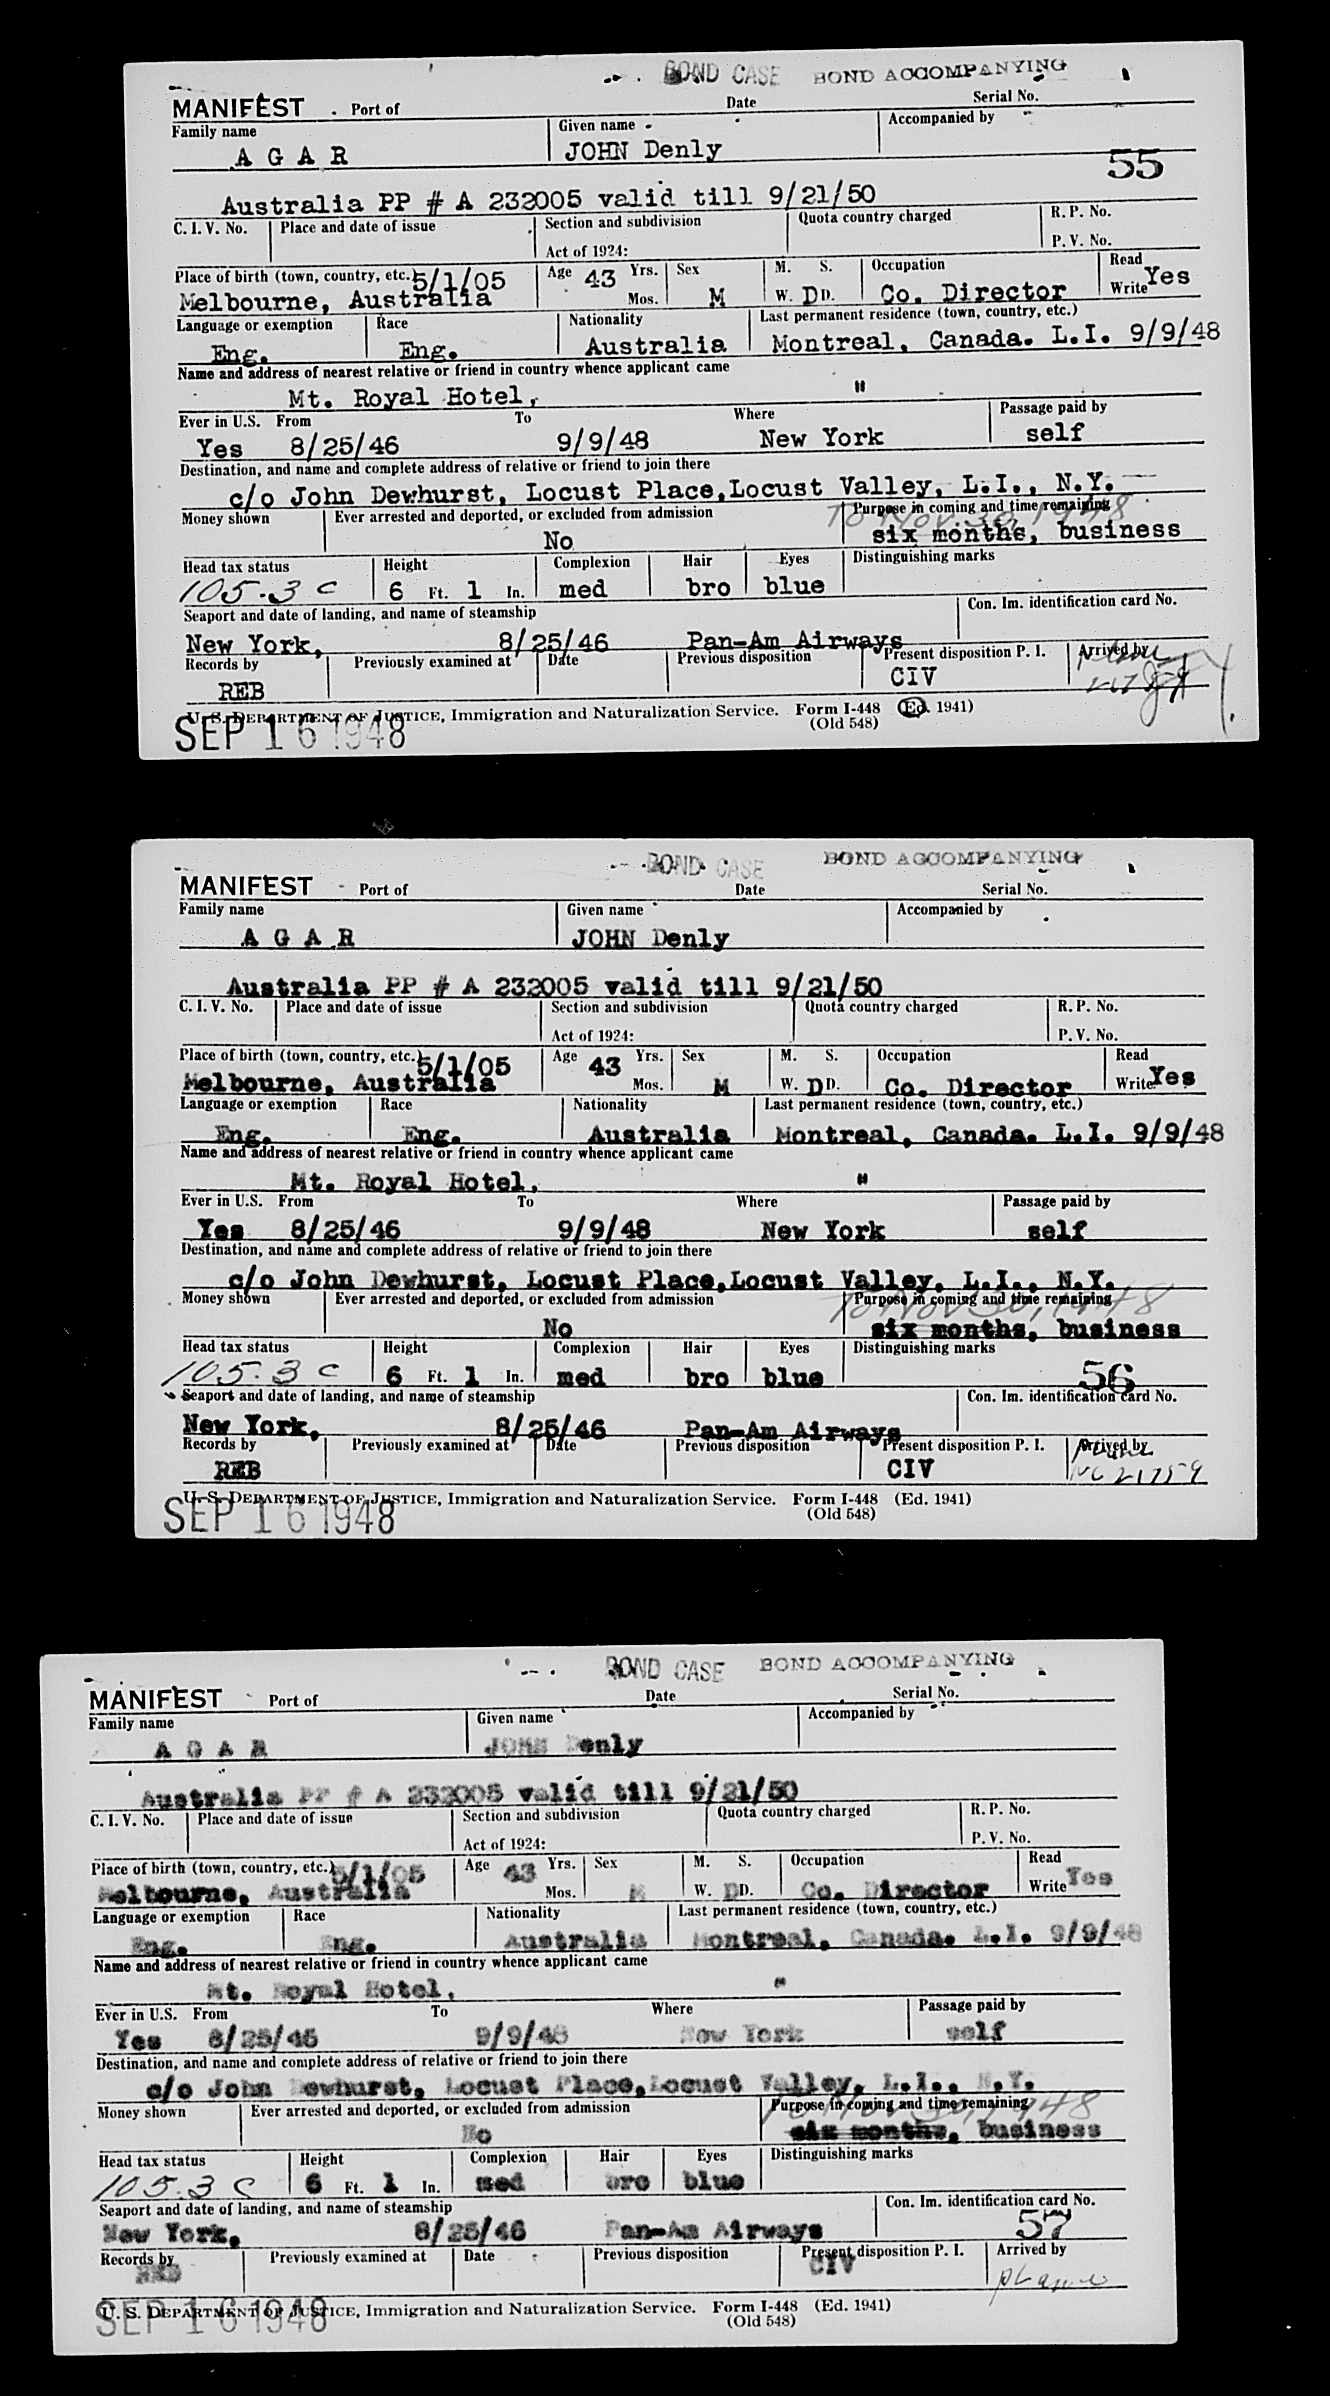 BOND CASE BOND ACCOMPANYING
MANIFEST Port of Date Serial No.
Family name Given name Accompanied by
A G A R JOHN Denly
55
Australia PP # A 232005 valid till 9/21/50
C. I. V. No. Place and date of issue Section and subdivision Quota country charged R. P. No.
Act of 1924: P. V. No.
Place of birth (town, country, etc.) 5/1/05 Age 43 Yrs. Sex M. S. Occupation Read Yes
Melbourne, Australia Mos. M W. D D. Co. Director Write
Language or exemption Race Nationality Last permanent residence (town, country, etc.)
Eng. Eng. Australia Montreal, Canada. L.I. 9/9/48
Name and address of nearest relative or friend in country whence applicant came
Mt. Royal Hotel, "
Ever in U.S. From To Where Passage paid by
Yes 8/25/46 9/9/48 New York self
Destination, and name and complete address of relative or friend to join there
c/o John Dewhurst, Locust Place,Locust Valley, L.I., N.Y.
Money shown Ever arrested and deported, or excluded from admission Purpose in coming and time remaining
To Nov. 30, 1948
No six months, business
Head tax status Height Complexion Hair Eyes Distinguishing marks
105.3 c 6 Ft. 1 In. med bro blue
Seaport and date of landing, and name of steamship Con. Im. identification card No.
New York, 8/25/46 Pan-Am Airways
Records by Previously examined at Date Previous disposition Present disposition P. I. Arrived by
REB CIV plane
U. S. DEPARTMENT OF JUSTICE, Immigration and Naturalization Service. Form I-448 (Ed. 1941)
SEP 16 1948 (Old 548)
BOND CASE BOND ACCOMPANYING
MANIFEST Port of Date Serial No.
Family name Given name Accompanied by
A G A R JOHN Denly
Australia PP # A 232005 valid till 9/21/50
C. I. V. No. Place and date of issue Section and subdivision Quota country charged R. P. No.
Act of 1924: P. V. No.
Place of birth (town, country, etc.) 5/1/05 Age 43 Yrs. Sex M. S. Occupation Read Yes
Melbourne, Australia Mos. M W. D D. Co. Director Write
Language or exemption Race Nationality Last permanent residence (town, country, etc.)
Eng. Eng. Australia Montreal, Canada. L.I. 9/9/48
Name and address of nearest relative or friend in country whence applicant came
Mt. Royal Hotel, "
Ever in U.S. From To Where Passage paid by
Yes 8/25/46 9/9/48 New York self
Destination, and name and complete address of relative or friend to join there
c/o John Dewhurst, Locust Place,Locust Valley, L.I., N.Y.
Money shown Ever arrested and deported, or excluded from admission Purpose in coming and time remaining
To Nov 30, 1948
No six months, business
Head tax status Height Complexion Hair Eyes Distinguishing marks
105.3 c 6 Ft. 1 In. med bro blue 56
Seaport and date of landing, and name of steamship Con. Im. identification card No.
New York, 8/25/46 Pan-Am Airways
Records by Previously examined at Date Previous disposition Present disposition P. I. Arrived by
REB CIV plane
NC 21759
U. S. DEPARTMENT OF JUSTICE, Immigration and Naturalization Service. Form I-448 (Ed. 1941)
SEP 16 1948 (Old 548)
BOND CASE BOND ACCOMPANYING
MANIFEST Port of Date Serial No.
Family name Given name Accompanied by
A G A R JOHN Denly
Australia PP # A 232005 valid till 9/21/50
C. I. V. No. Place and date of issue Section and subdivision Quota country charged R. P. No.
Act of 1924: P. V. No.
Place of birth (town, country, etc.) 5/1/05 Age 43 Yrs. Sex M. S. Occupation Read Yes
Melbourne, Australia Mos. M W. D D. Co. Director Write
Language or exemption Race Nationality Last permanent residence (town, country, etc.)
Eng. Eng. Australia Montreal, Canada. L.I. 9/9/48
Name and address of nearest relative or friend in country whence applicant came
Mt. Royal Hotel, "
Ever in U.S. From To Where Passage paid by
Yes 8/25/46 9/9/48 New York self
Destination, and name and complete address of relative or friend to join there
c/o John Dewhurst, Locust Place,Locust Valley, L.I., N.Y.
Money shown Ever arrested and deported, or excluded from admission Purpose in coming and time remaining
To Nov 30, 1948
No six months, business
Head tax status Height Complexion Hair Eyes Distinguishing marks
105.3 c 6 Ft. 1 In. med bro blue
Seaport and date of landing, and name of steamship Con. Im. identification card No.
New York, 8/25/46 Pan-Am Airways 57
Records by Previously examined at Date Previous disposition Present disposition P. I. Arrived by
REB CIV plane
U. S. DEPARTMENT OF JUSTICE, Immigration and Naturalization Service. Form I-448 (Ed. 1941)
SEP 16 1948 (Old 548)